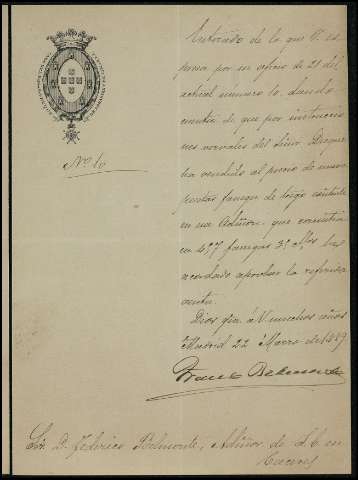 No 10
Enterado de lo que V. ex
pone por su oficio de 21 del
actual numero 10, dando
cuenta de que por instruccio
nes verbales del Señor Duque
ha vendido al precio de nueve
pesetas fanega de trigo existente
en su Admon. que consistia
en 497 fanegas 3 he
acordado aprobar la referida
venta.
Dios gue. á V. muchos años
Madrid 22 Marzo de 1889
Franc Belmonte
Sr. D. Federico Belmonte, Admor de S.E. en
Caceres